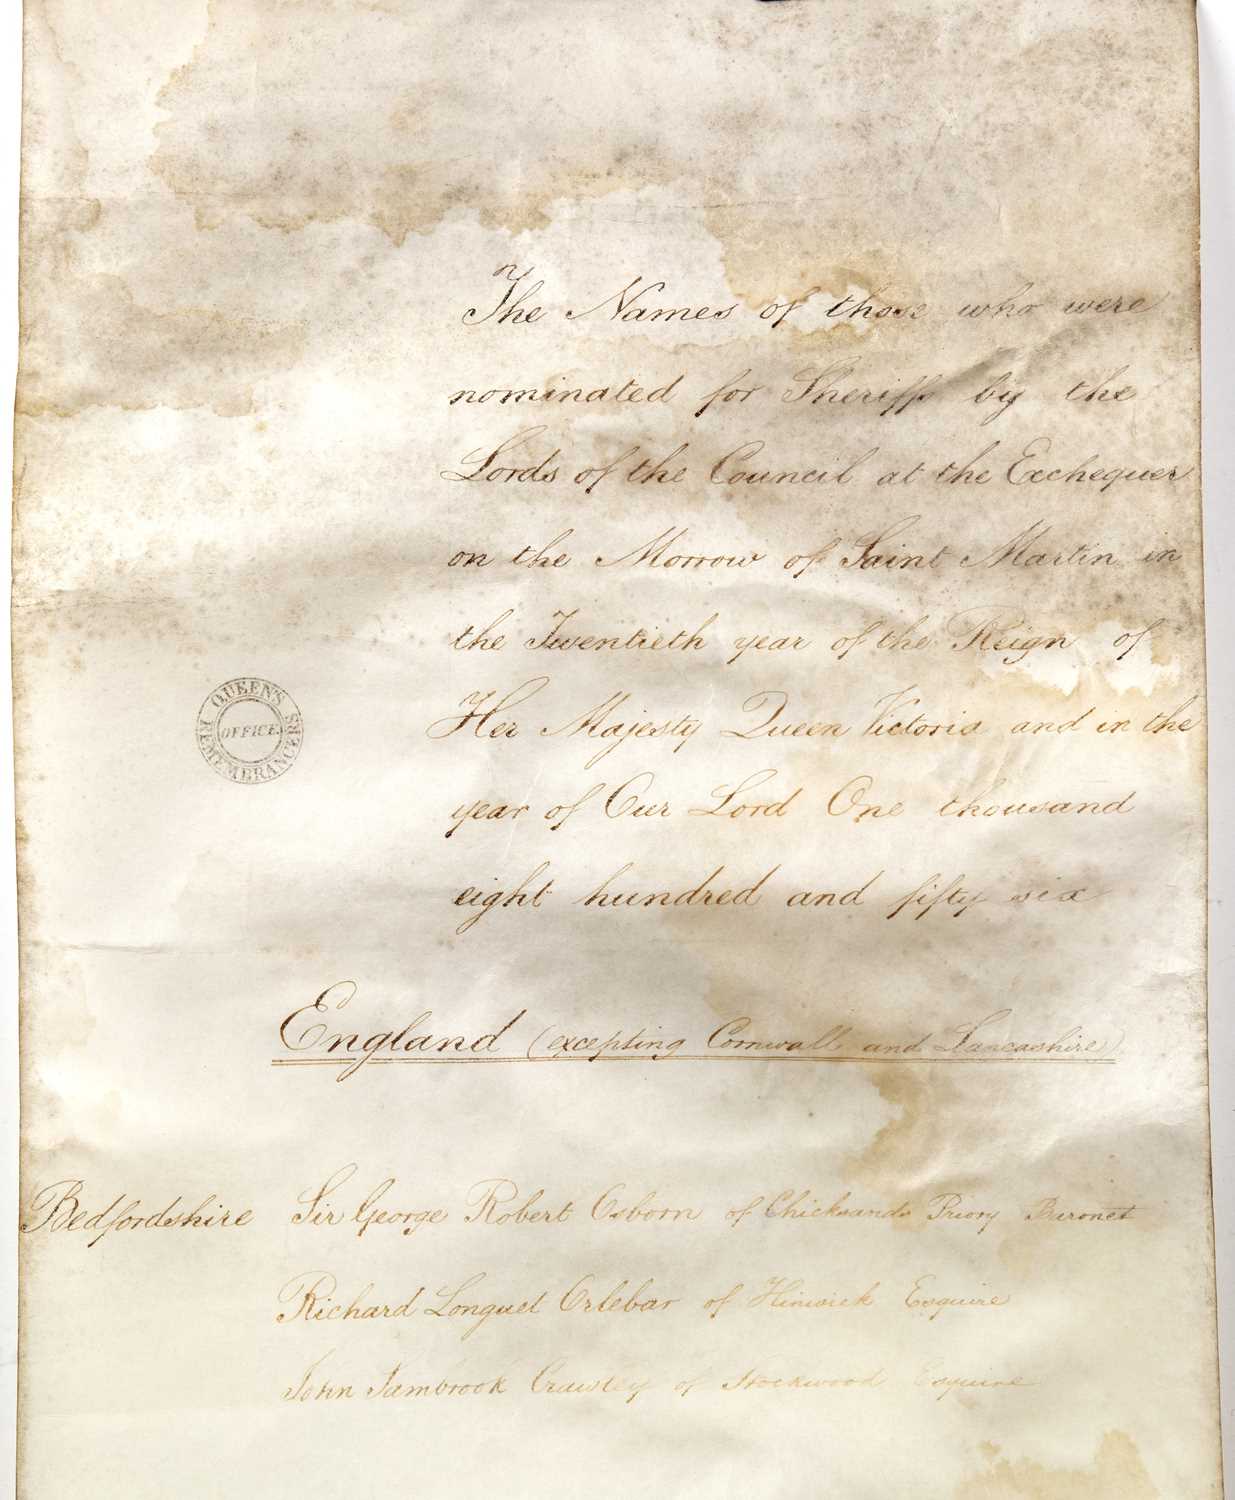 The Names of those who were
nominated for Sheriffs by the
Lords of the Council at the Exchequer
on the Morrow of Saint Martin in
the Twentieth year of the Reign of
Her Majesty Queen Victoria and in the
year of Our Lord One thousand
eight hundred and fifty six
QUEEN'S REMEMBRANCERS
OFFICE
England (excepting Cornwall and Lancashire)
Bedfordshire Sir George Robert Osborn of Chicksands Priory Baronet
Richard Longuet Orlebar of Hinwick Esquire
John Sambrook Crawley of Stockwood Esquire